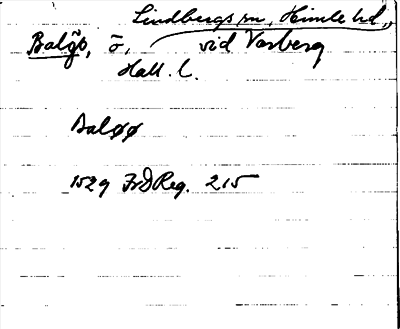 Lindbergs sn, Himle hd.,
Balgö, ö, vid Varberg
Hall. l.
Baløø
1529 FrDReg. 215